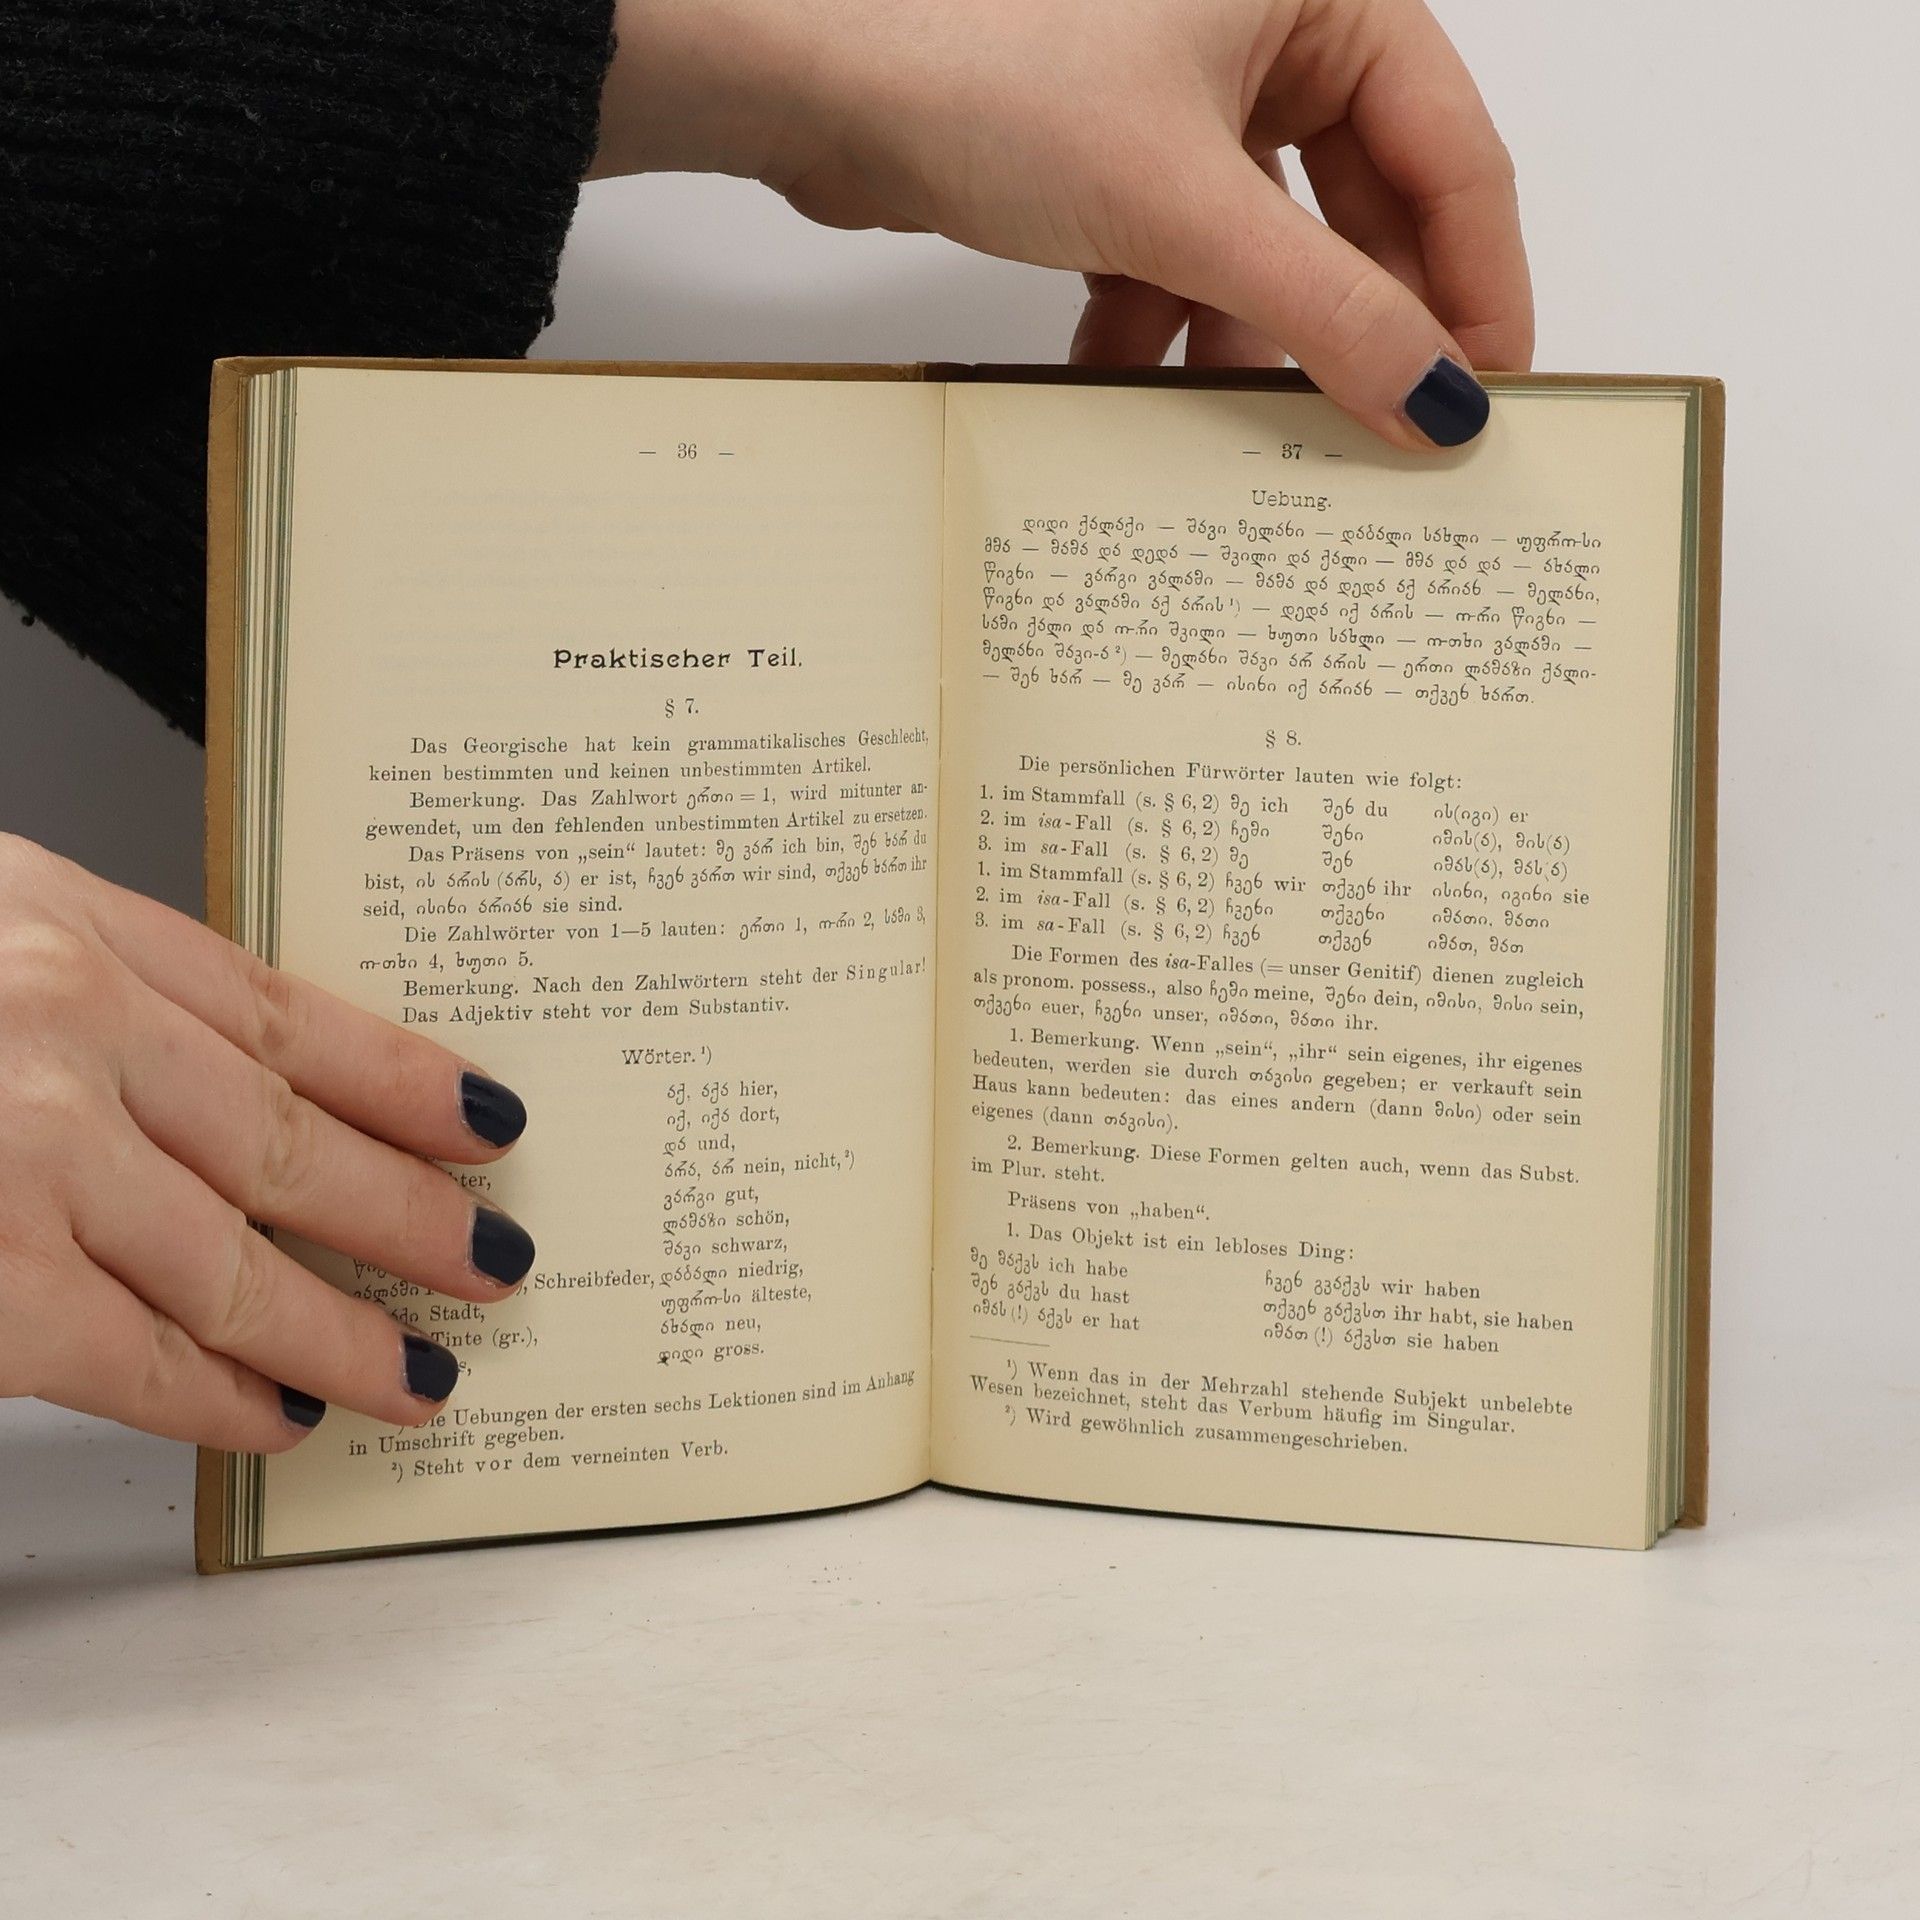 — 36 —
Praktischer Teil.
§ 7.
Das Georgische hat kein grammatikalisches Geschlecht,
keinen bestimmten und keinen unbestimmten Artikel.
Bemerkung. Das Zahlwort ერთი = 1, wird mitunter an-
gewendet, um den fehlenden unbestimmten Artikel zu ersetzen.
Das Präsens von „sein“ lautet: მე ვარ ich bin, შენ ხარ du
bist, ის არის (არს, ა) er ist, ჩვენ ვართ wir sind, თქვენ ხართ ihr
seid, ისინი არიან sie sind.
Die Zahlwörter von 1—5 lauten: ერთი 1, ო-რი 2, სამი 3,
ო-თხი 4, ხუთი 5.
Bemerkung. Nach den Zahlwörtern steht der Singular!
Das Adjektiv steht vor dem Substantiv.
Wörter. ¹)
Stadt,
Tinte (gr.),
Schreibfeder,
აქ, აქა hier,
იქ, იქა dort,
და und,
არა, არ nein, nicht, ²)
ვარგი gut,
ლამაზი schön,
შავი schwarz,
დაბალი niedrig,
უფრო-სი älteste,
ახალი neu,
დიდი gross.
Die Uebungen der ersten sechs Lektionen sind im Anhang
in Umschrift gegeben.
²) Steht vor dem verneinten Verb.
— 37 —
Uebung.
დიდი ქალაქი — შავი მელანი — დაბალი სახლი — უფრო-სი
ძმა — მამა და დედა — შვილი და ქალი — ძმა და და — ახალი
წიგნი — ვარგი ვალამი — მამა და დედა აქ არიან — მელანი,
წიგნი და ვალამი აქ არის ¹) — დედა იქ არის — ო-რი წიგნი —
სამი ქალი და ო-რი შვილი — ხუთი სახლი — ო-თხი ვალამი —
მელანი შავი-ა ²) — მელანი შავი არ არის — ერთი ლამაზი ქალი-
— შენ ხარ — მე ვარ — ისინი იქ არიან — თქვენ ხართ.
§ 8.
Die persönlichen Fürwörter lauten wie folgt:
1. im Stammfall (s. § 6, 2) მე ich შენ du ის(იგი) er
2. im isa-Fall (s. § 6, 2) ჩემი შენი იმის(ა), მის(ა)
3. im sa-Fall (s. § 6, 2) მე შენ იმას(ა), მას(ა)
1. im Stammfall (s. § 6, 2) ჩვენ wir თქვენ ihr ისინი, იგინი sie
2. im isa-Fall (s. § 6, 2) ჩვენი თქვენი იმათი, მათი
3. im sa-Fall (s. § 6, 2) ჩვენ თქვენ იმათ, მათ
Die Formen des isa-Falles (= unser Genitif) dienen zugleich
als pronom. possess., also ჩემი meine, შენი dein, იმისი, მისი sein,
თქვენი euer, ჩვენი unser, იმათი, მათი ihr.
1. Bemerkung. Wenn „sein“, „ihr“ sein eigenes, ihr eigenes
bedeuten, werden sie durch თავისი gegeben; er verkauft sein
Haus kann bedeuten: das eines andern (dann მისი) oder sein
eigenes (dann თავისი).
2. Bemerkung. Diese Formen gelten auch, wenn das Subst.
im Plur. steht.
Präsens von „haben“.
1. Das Objekt ist ein lebloses Ding:
მე მაქვს ich habe ჩვენ გვაქვს wir haben
შენ გაქვს du hast თქვენ გაქვსთ ihr habt, sie haben
იმას (!) აქვს er hat იმათ (!) აქვსთ sie haben
¹) Wenn das in der Mehrzahl stehende Subjekt unbelebte
Wesen bezeichnet, steht das Verbum häufig im Singular.
²) Wird gewöhnlich zusammengeschrieben.